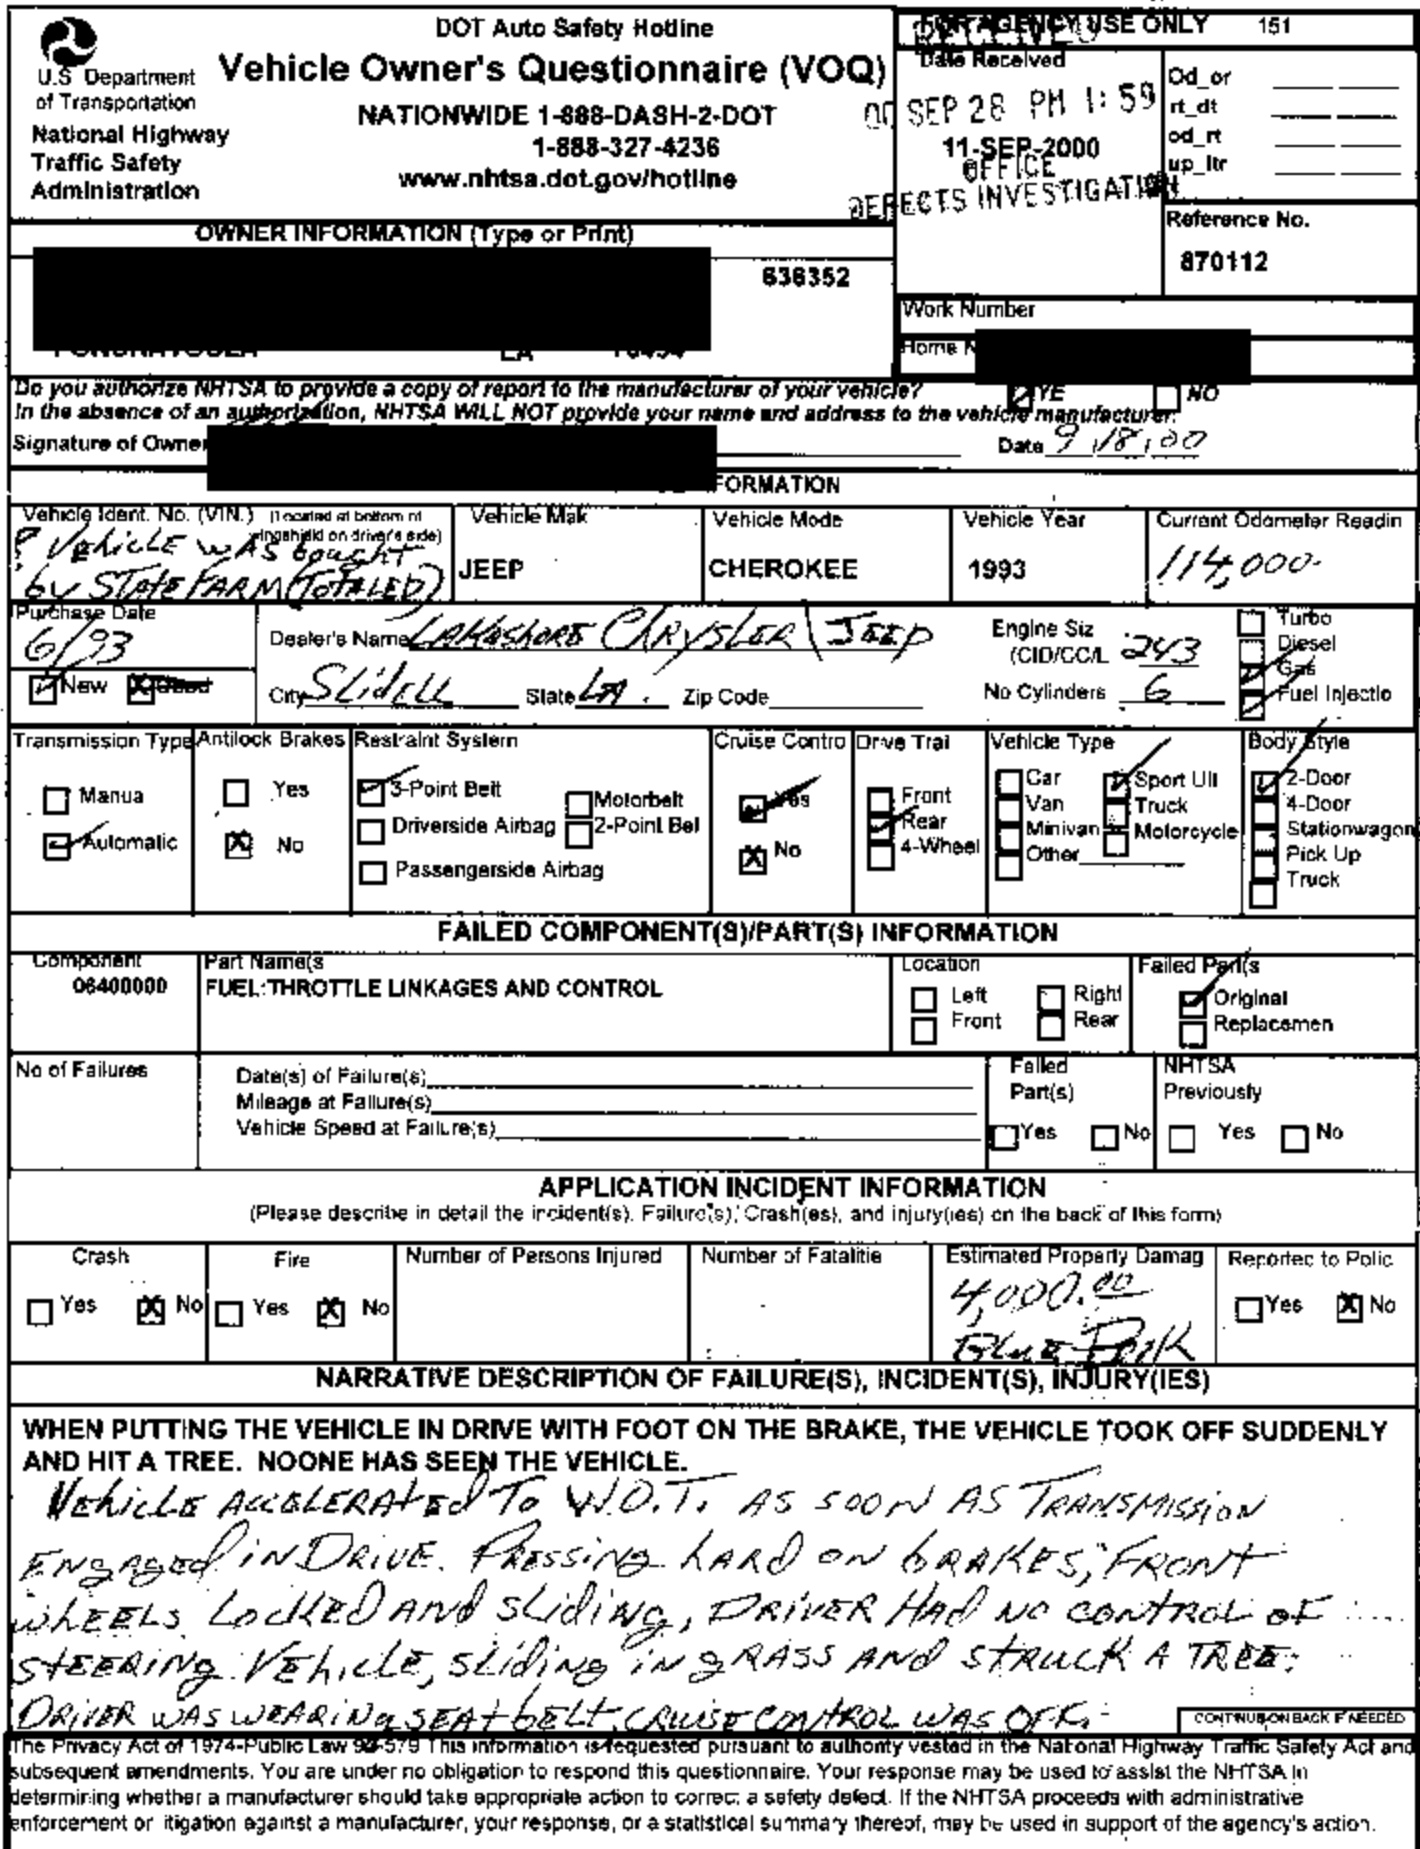 DOT Auto Safety Hotline
Vehicle Owner's Questionnaire (VOQ)
NATIONWIDE 1-888-DASH-2-DOT
1-888-327-4236
www.nhtsa.dot.gov/hotline
U.S. Department
of Transportation
National Highway
Traffic Safety
Administration
FOR AGENCY USE ONLY 151
RECEIVED
Date Received
00 SEP 28 PM 1:59
11-SEP-2000
OFFICE
DEFECTS INVESTIGATION
Od_or
rt_dt
od_rt
up_ltr
Reference No.
870112
OWNER INFORMATION (Type or Print)
636352
LA
Work Number
Home N
Do you authorize NHTSA to provide a copy of report to the manufacturer of your vehicle? YE NO
In the absence of an authorization, NHTSA WILL NOT provide your name and address to the vehicle manufacturer.
Signature of Owner Date 9/18/00
FORMATION
Vehicle Ident. No. (VIN.) (Located at bottom of
windshield on driver's side)
? VEhiCLE WAS bought
by STATE FARM (TOTALED)
Vehicle Mak
JEEP
Vehicle Mode
CHEROKEE
Vehicle Year
1993
Current Odometer Readin
114,000-
Purchase Date
6/93
New Used
Dealer's Name LAKESHORE CHRYSLER \ JEEP
City SLidELL State LA. Zip Code
Engine Siz
(CID/CC/L 243
No Cylinders 6
Turbo
Diesel
Gas
Fuel Injectio
Transmission Type
Manua
Automatic
Antilock Brakes
Yes
No
Restraint System
3-Point Belt
Motorbelt
Driverside Airbag
2-Point Bel
Passengerside Airbag
Cruise Contro
Yes
No
Drive Trai
Front
Rear
4-Wheel
Vehicle Type
Car
Sport Uli
Van
Truck
Minivan
Motorcycle
Other
Body Style
2-Door
4-Door
Stationwagon
Pick Up
Truck
FAILED COMPONENT(S)/PART(S) INFORMATION
Component
06400000
Part Name(s
FUEL:THROTTLE LINKAGES AND CONTROL
Location
Left Right
Front Rear
Failed Part(s
Original
Replacemen
No of Failures
Date(s) of Failure(s)
Mileage at Failure(s)
Vehicle Speed at Failure(s)
Failed
Part(s)
Yes No
NHTSA
Previously
Yes No
APPLICATION INCIDENT INFORMATION
(Please describe in detail the incident(s), Failure(s), Crash(es), and injury(ies) on the back of this form)
Crash
Yes No
Fire
Yes No
Number of Persons Injured
Number of Fatalitie
Estimated Property Damag
4,000.00
BLUE BOOK
Reported to Polic
Yes No
NARRATIVE DESCRIPTION OF FAILURE(S), INCIDENT(S), INJURY(IES)
WHEN PUTTING THE VEHICLE IN DRIVE WITH FOOT ON THE BRAKE, THE VEHICLE TOOK OFF SUDDENLY
AND HIT A TREE. NOONE HAS SEEN THE VEHICLE.
VEhiCLE ACCELERATEd TO W.O.T. AS SOON AS TRANSMISSION
ENGAGEd iN DRIVE. PRESSING hARd ON bRAKES, FRONT
WhEELS LOCKED ANd SLidiNg, DRIVER HAd NO CONTROL OF
STEERING VEhiCLE, SLidiNG iN gRASS ANd STRUCK A TREE.
DRIVER WAS WEARING SEAt bELt, CRUISE CONTROL WAS OFF.
CONTINUE ON BACK IF NEEDED
The Privacy Act of 1974-Public Law 93-579 This information is requested pursuant to authority vested in the National Highway Traffic Safety Act and
subsequent amendments. You are under no obligation to respond this questionnaire. Your response may be used to assist the NHTSA in
determining whether a manufacturer should take appropriate action to correct a safety defect. If the NHTSA proceeds with administrative
enforcement or litigation against a manufacturer, your response, or a statistical summary thereof, may be used in support of the agency's action.